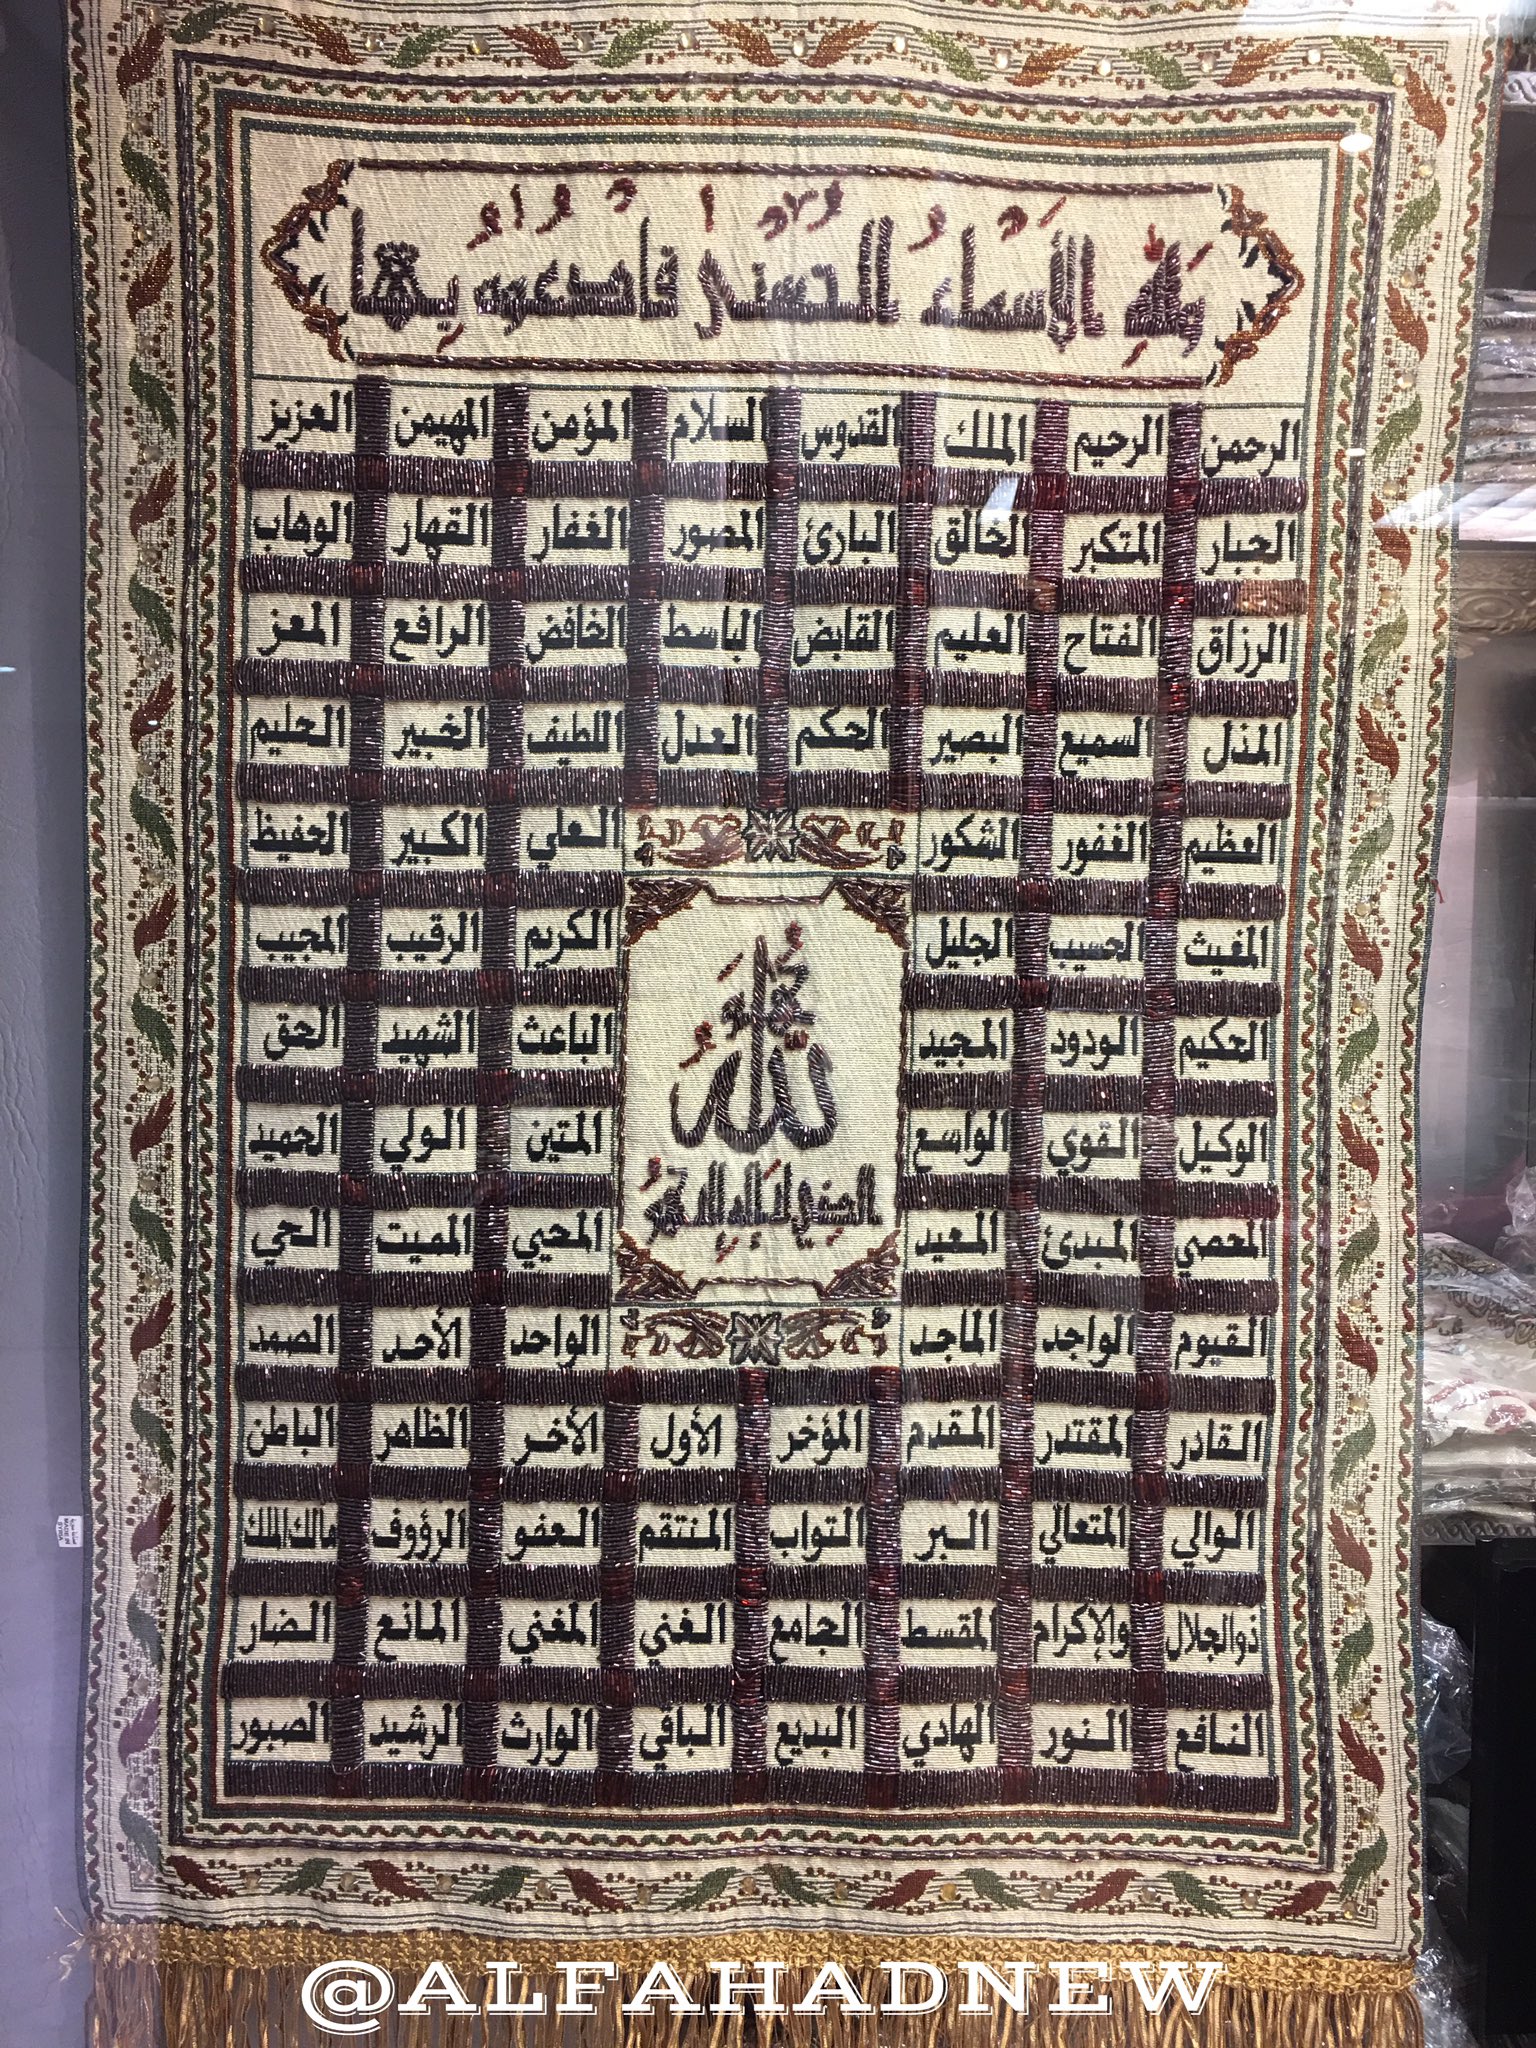 ولله الأسماء الحسنى فادعوه بها
الرحمن الرحيم الملك القدوس السلام المؤمن المهيمن العزيز
الجبار المتكبر الخالق البارئ المصور الغفار القهار الوهاب
الرزاق الفتاح العليم القابض الباسط الخافض الرافع المعز
المذل السميع البصير الحكم العدل اللطيف الخبير الحليم
العظيم الغفور الشكور العلي الكبير الحفيظ
المغيث الحسيب الجليل الكريم الرقيب المجيب
الحكيم الودود المجيد الباعث الشهيد الحق
الوكيل القوي الواسع المتين الولي الحميد
المحصي المبدئ المعيد المحيي المميت الحي
القيوم الواجد الماجد الواحد الأحد الصمد
هو الله
الذي لا إله إلا هو
القادر المقتدر المقدم المؤخر الأول الأخر الظاهر الباطن
الوالي المتعالي البر التواب المنتقم العفو الرؤوف مالك الملك
ذوالجلال والإكرام المقسط الجامع الغني المغني المانع الضار
النافع النور الهادي البديع الباقي الوارث الرشيد الصبور
MADE IN
SYRIA
@ALFAHADNEW